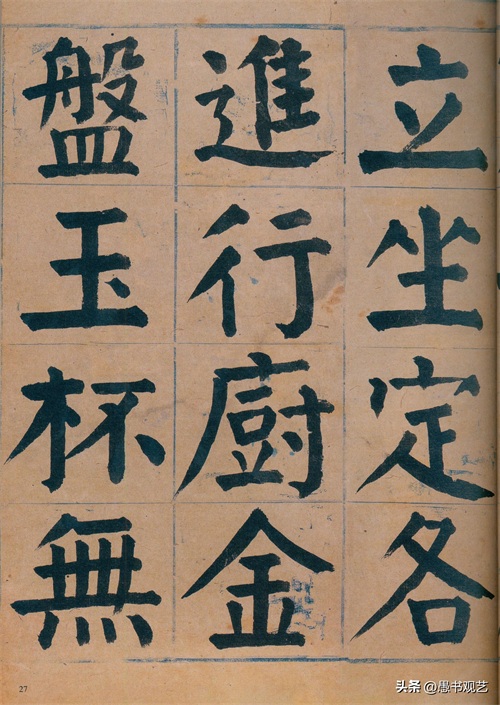 立坐定各
進行廚金
盤玉杯無
27
头条@愚书观艺